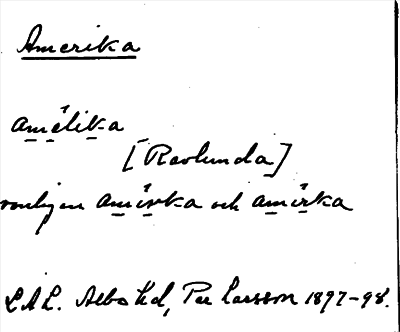 Amerika
amelika
[Revlunda]
vanligen amerka och amirka
LAL. Albo hd, Per Larsson 1897-98.